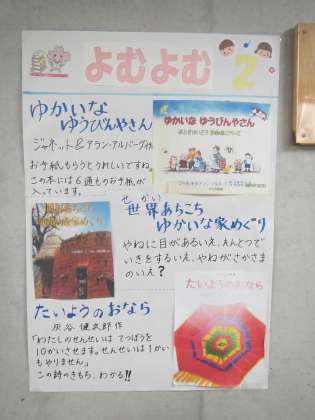 よむよむ 2
ゆかいな
ゆうびんやさん
ジャネット＆アラン・アルバーグ作
お手紙もらうとうれしいですね。
この本には6通ものお手紙が
入っています。
ゆかいな ゆうびんやさん
せかい
世界あちこち
ゆかいな家めぐり
やねに目があるいえ、えんとつで
いきをするいえ、やねがさかさま
のいえ？
たいようのおなら
灰谷 健次郎 作
「わたしのせんせいは てつぼうを
10かいさせます。せんせいは1かい
もやりません」
この詩のきもち、わかる!!
たいようのおなら